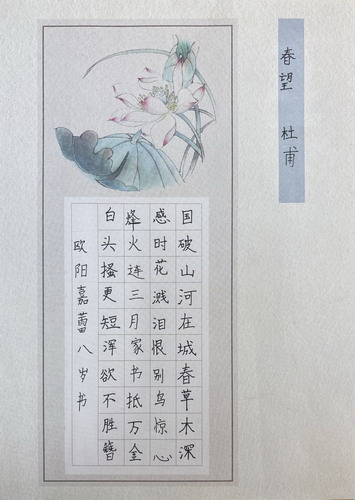 春望 杜甫
国破山河在城春草木深
感时花溅泪恨别鸟惊心
烽火连三月家书抵万金
白头搔更短浑欲不胜簪
欧阳嘉蕾八岁书